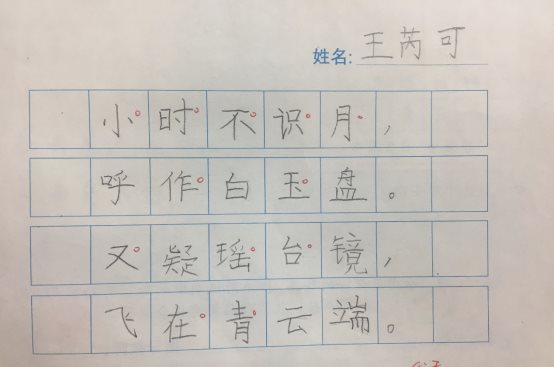 姓名: 王芮可
小时不识月，
呼作白玉盘。
又疑瑶台镜，
飞在青云端。